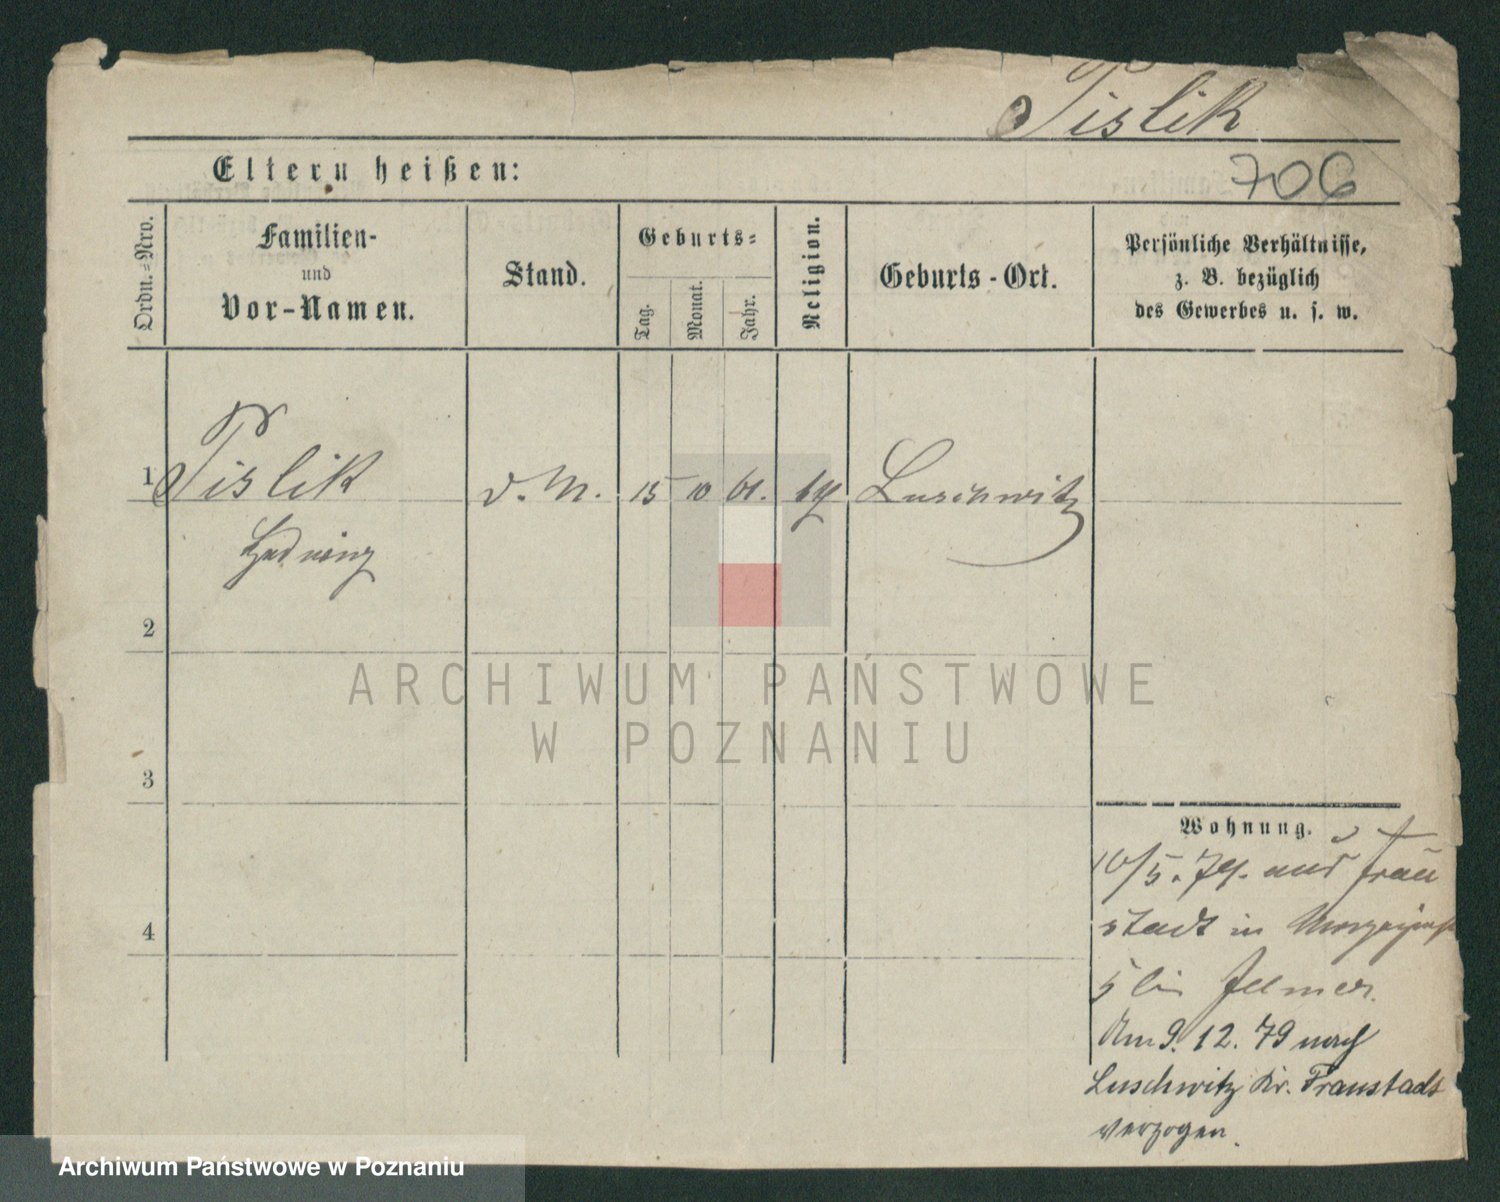 Tislik
706
Eltern heißen:
Ordn.=Nro.
Familien-
und
Vor-Namen.
Stand.
Geburts=
Tag.
Monat.
Jahr.
Religion.
Geburts-Ort.
Persönliche Verhältnisse,
z. B. bezüglich
des Gewerbes u. s. w.
1 Tislik d. M. 15 10 61. Luschwitz
Hedwig
2
3
4
ARCHIWUM PAŃSTWOWE
W POZNANIU
Wohnung.
10/5. 79. aus Frau
stadt in
5 bei
Am 9. 12. 79 nach
Luschwitz Kr. Fraustadt
verzogen.
Archiwum Państwowe w Poznaniu